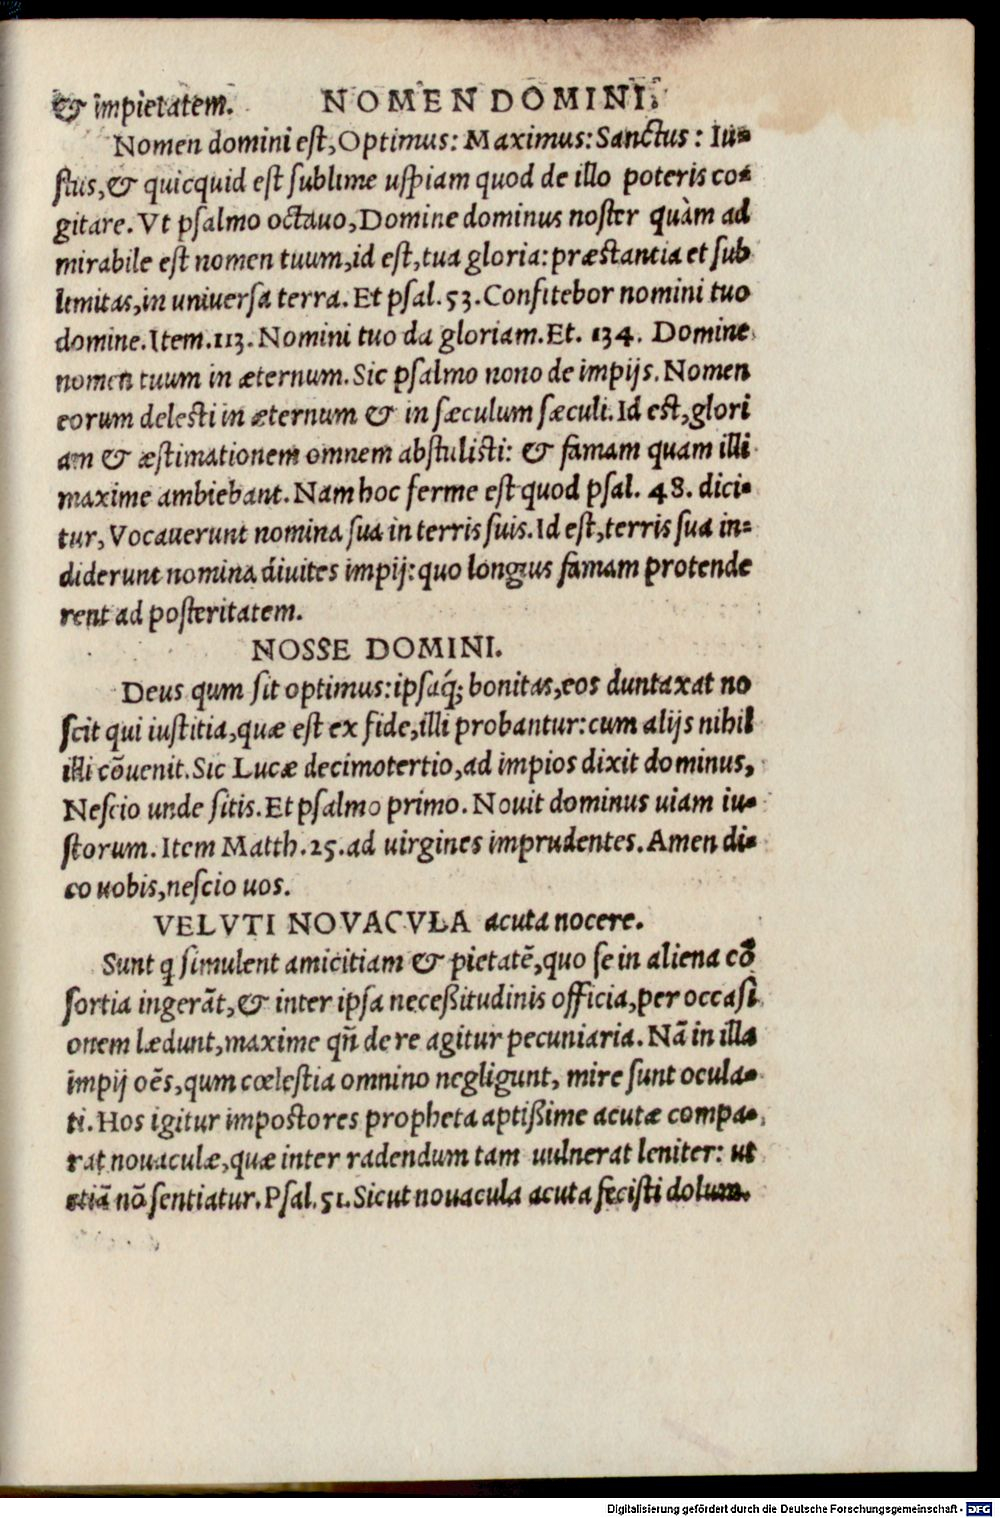 & impietatem. NOMEN DOMINI.
Nomen domini est, Optimus: Maximus: Sanctus: Iu-
stus, & quicquid est sublime uspiam quod de illo poteris co-
gitare. Vt psalmo octauo, Domine dominus noster quàm ad
mirabile est nomen tuum, id est, tua gloria: præstantia et sub
limitas, in uniuersa terra. Et psal. 53. Confitebor nomini tuo
domine. Item. 113. Nomini tuo da gloriam. Et. 134. Domine
nomen tuum in æternum. Sic psalmo nono de impijs. Nomen
eorum delesti in æternum & in sæculum sæculi. Id est, glori
am & æstimationem omnem abstulisti: & famam quam illi
maxime ambiebant. Nam hoc ferme est quod psal. 48. dici-
tur, Vocauerunt nomina sua in terris suis. Id est, terris sua in-
diderunt nomina diuites impij: quo longius famam protende
rent ad posteritatem.
NOSSE DOMINI.
Deus qum sit optimus: ipsaq; bonitas, eos duntaxat no
scit qui iustitia, quæ est ex fide, illi probantur: cum alijs nihil
illi cōuenit. Sic Lucæ decimotertio, ad impios dixit dominus,
Nescio unde sitis. Et psalmo primo. Nouit dominus uiam iu-
storum. Item Matth. 25. ad uirgines imprudentes. Amen di-
co uobis, nescio uos.
VELVTI NOVACVLA acuta nocere.
Sunt q̃ simulent amicitiam & pietatē, quo se in aliena cō
sortia ingerãt, & inter ipsa neceßitudinis officia, per occasi
onem lædunt, maxime qñ de re agitur pecuniaria. Nã in illa
impij oēs, qum cœlestia omnino negligunt, mire sunt ocula-
ti. Hos igitur impostores propheta aptißime acutæ compa-
rat nouaculæ, quæ inter radendum tam uulnerat leniter: ut
etiã nō sentiatur. Psal. 51. Sicut nouacula acuta fecisti dolum.
Digitalisierung gefördert durch die Deutsche Forschungsgemeinschaft - DFG